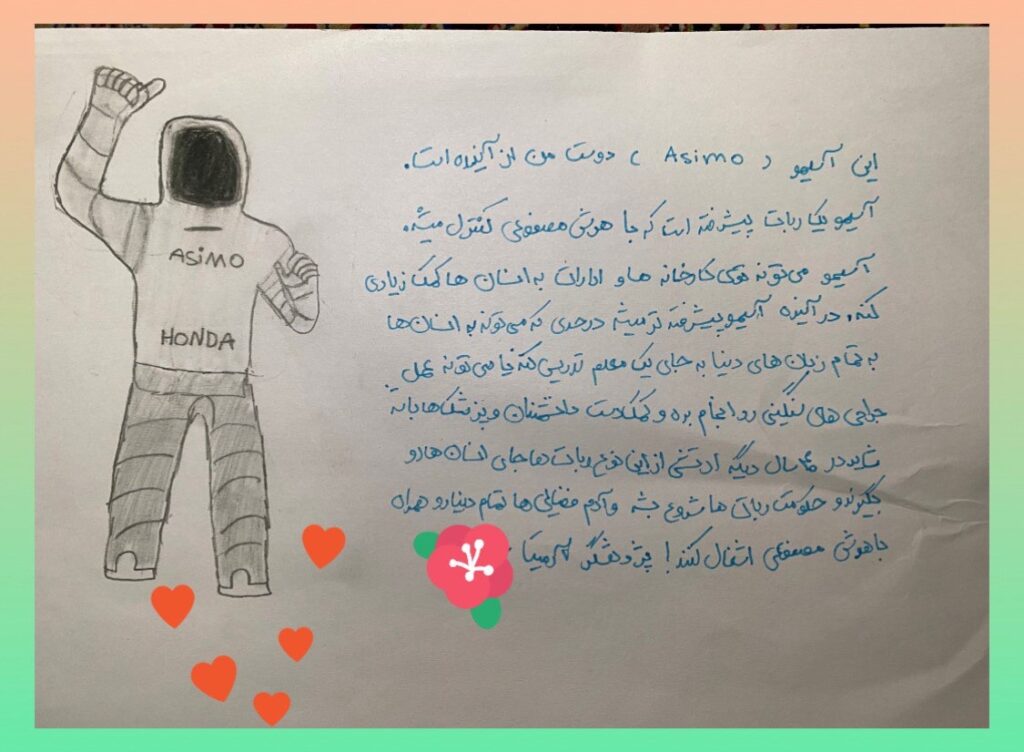 این آسیمو ( Asimo ) دوست من از آینده است.
آسیمو یک ربات پیشرفته است که با هوش مصنوعی کنترل میشه.
آسیمو می‌تونه توی کارخانه ها و ادارات به انسان ها کمک زیادی
کنه، در آینده آسیمو پیشرفته تر میشه در حدی که می‌تونه به انسان‌ها
به تمام زبان های دنیا به جای یک معلم تدریس کنه یا می تونه عمل
جراحی های سنگینی رو انجام بده و کمک دست دانشمندان و پزشک‌ها باشه
شاید در ۴۰ سال دیگه ارتشی از این نوع ربات ها جای انسان ها رو
بگیرند و حکومت ربات ها شروع بشه و آدم فضایی ها تمام دنیا رو همراه
با هوش مصنوعی اشغال کنند! پژوهشگر
ASIMO
HONDA